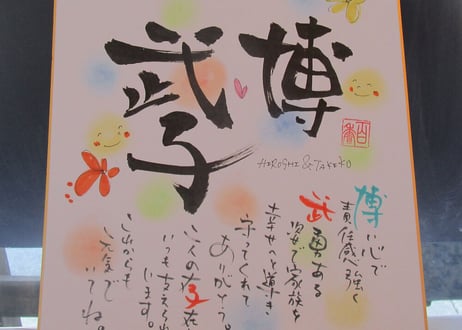 博
武子
HIROSHI & TAKEKO
博い心で
責任感が強く
武勇ある
姿で家族を
幸せへと導き
守ってくれて
ありがとう。
二人の存在
いつも支えられ
います。
これからも
元気で
いてね。